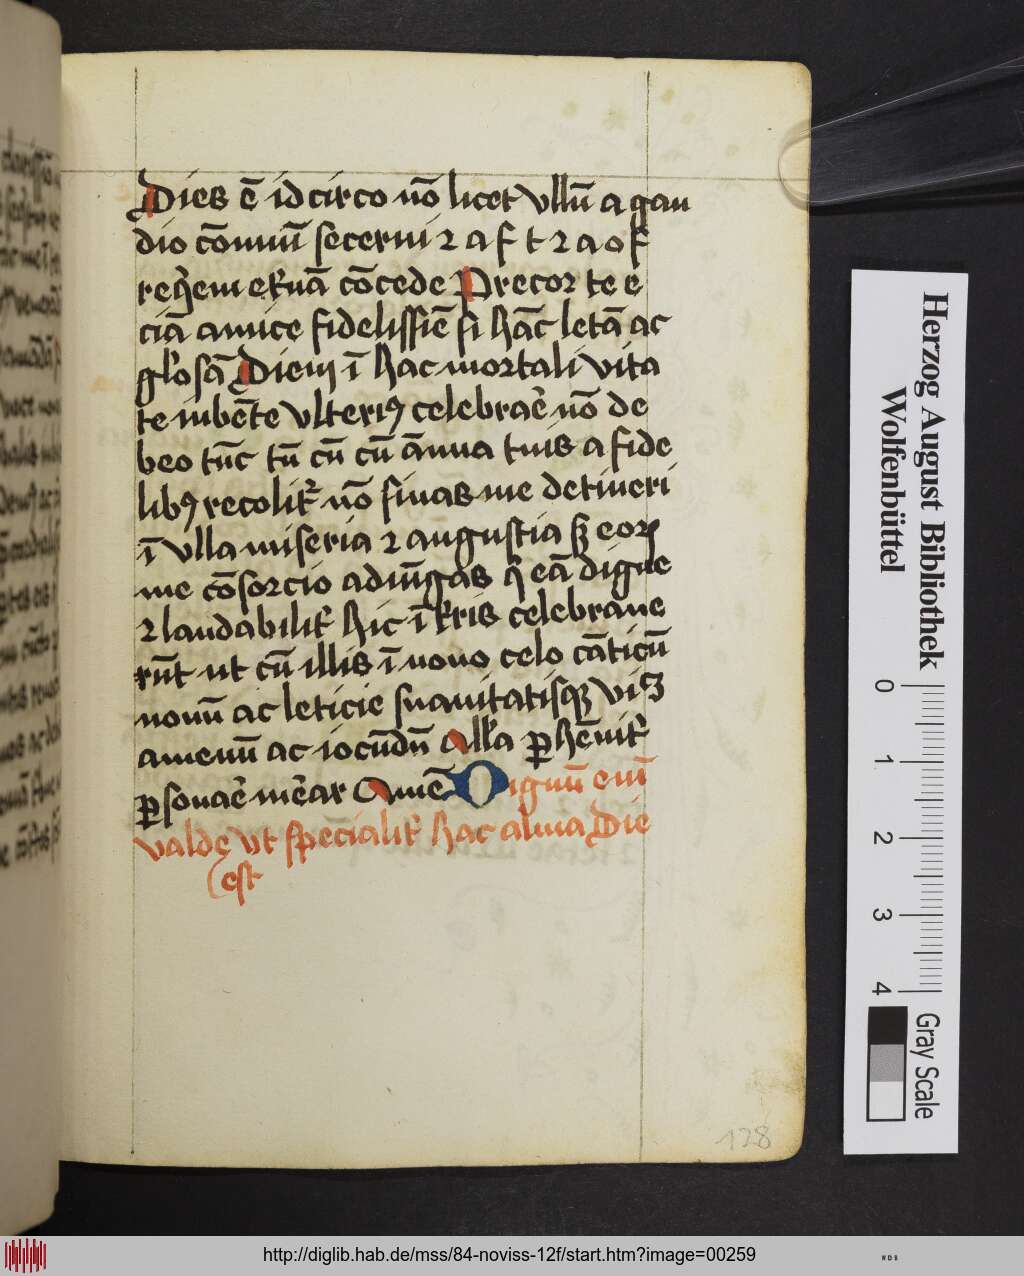 Dies ē idcirco nō licet vllū a gau
dio cōmuni secerni ꝛ a f t ꝛ a o f
cōcede Precor te e
ciā amice fidelissiē si hāc letā ac
gl'osā Diem ī hac mortali vita
te iubēte vlteriꝰ celebraē nō de
beo tūc tū cū cū āīma tuis a fide
libꝰ recolit' nō sinas me detineri
ī vlla miseria ꝛ angustia sꝫ eoꝝ
me cōsorcio adiūgas q' eā digne
ꝛ laudabilit' hic ī t'ris celebraue
rūt ut cū illis ī nouo celo cāticū
nouū ac leticie suauitatisqꝫ
amenū ac iocūdū all'a ꝑhēnit'
ꝑsonaē mēar Amē Dignū eni
valde vt specialit' hac alma Die
est
128
Herzog August Bibliothek
Wolfenbüttel
0
1
2
3
4
Gray Scale
http://diglib.hab.de/mss/84-noviss-12f/start.htm?image=00259